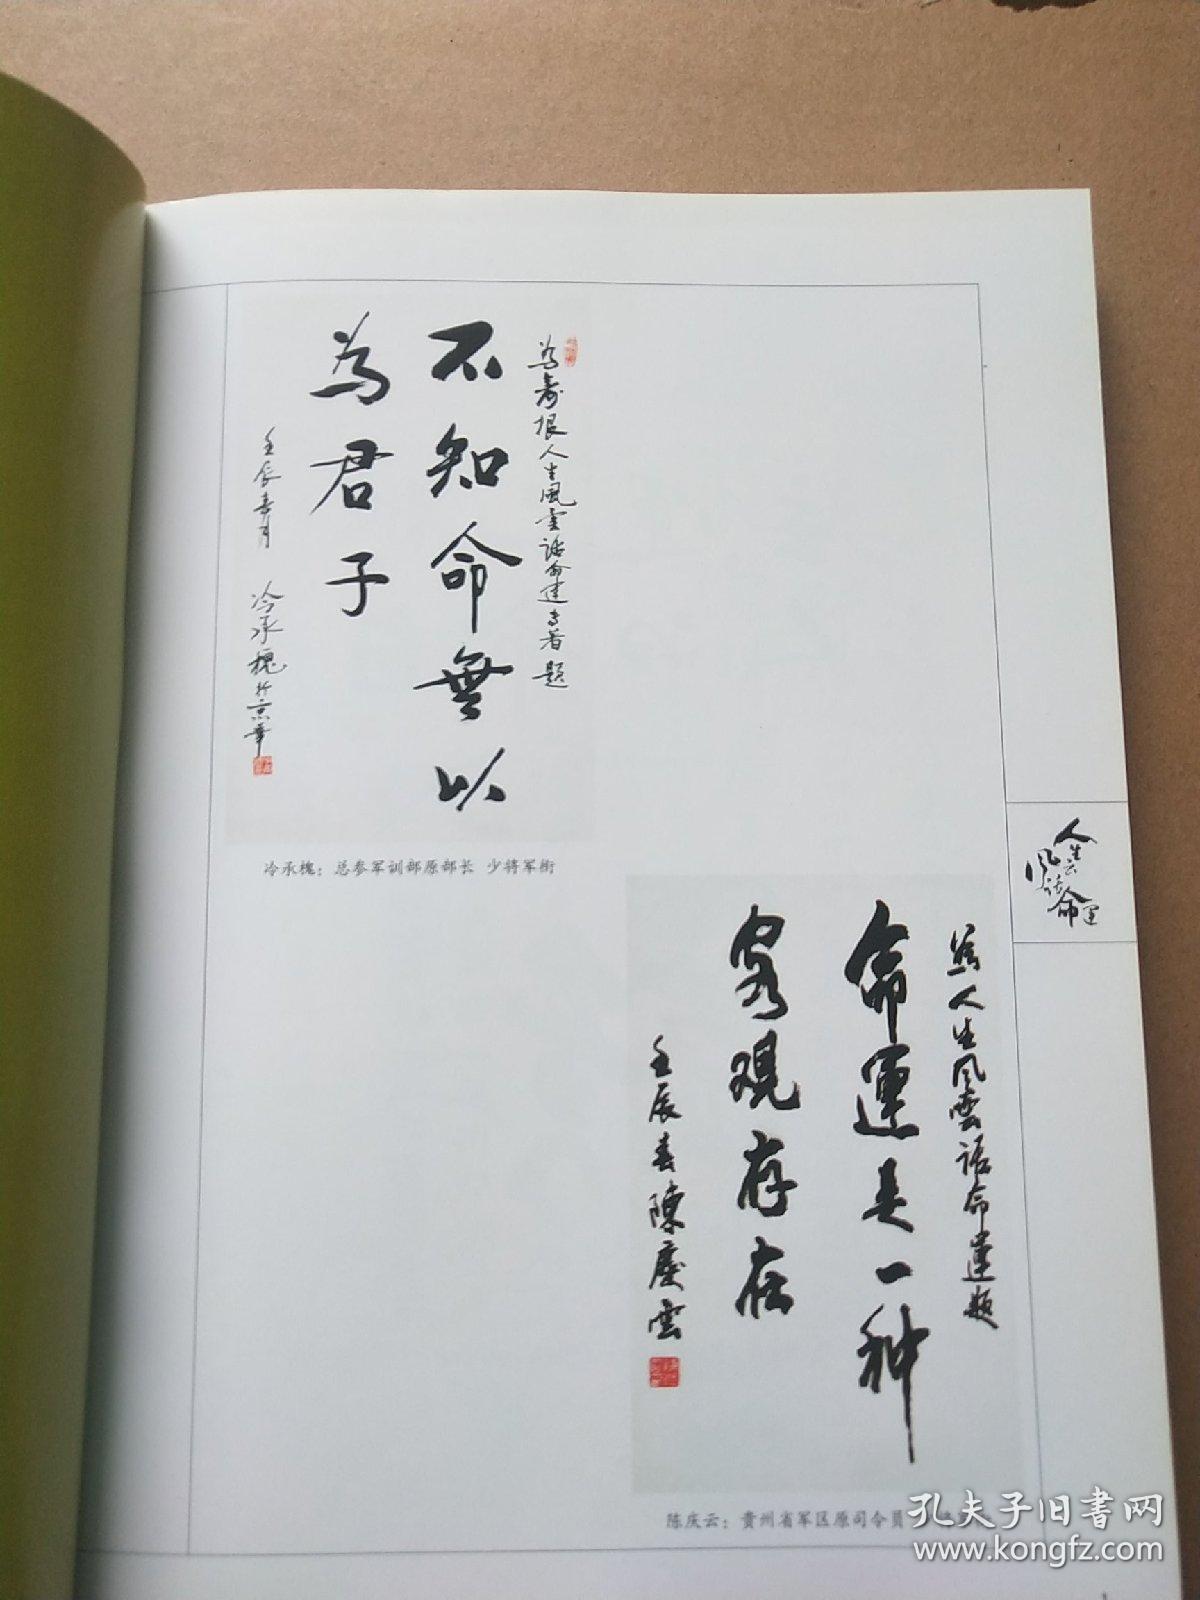 为寿根人生風雲話命運专著题
不知命無以
為君子
壬辰春月 冷承槐於京華
冷承槐：总参军训部原部长 少将军衔
人生风云话命运
为人生风雲话命運题
命運是一种
客观存在
壬辰春陳慶雲
陈庆云：贵州省军区原司令员
孔夫子旧书网
www.kongfz.com